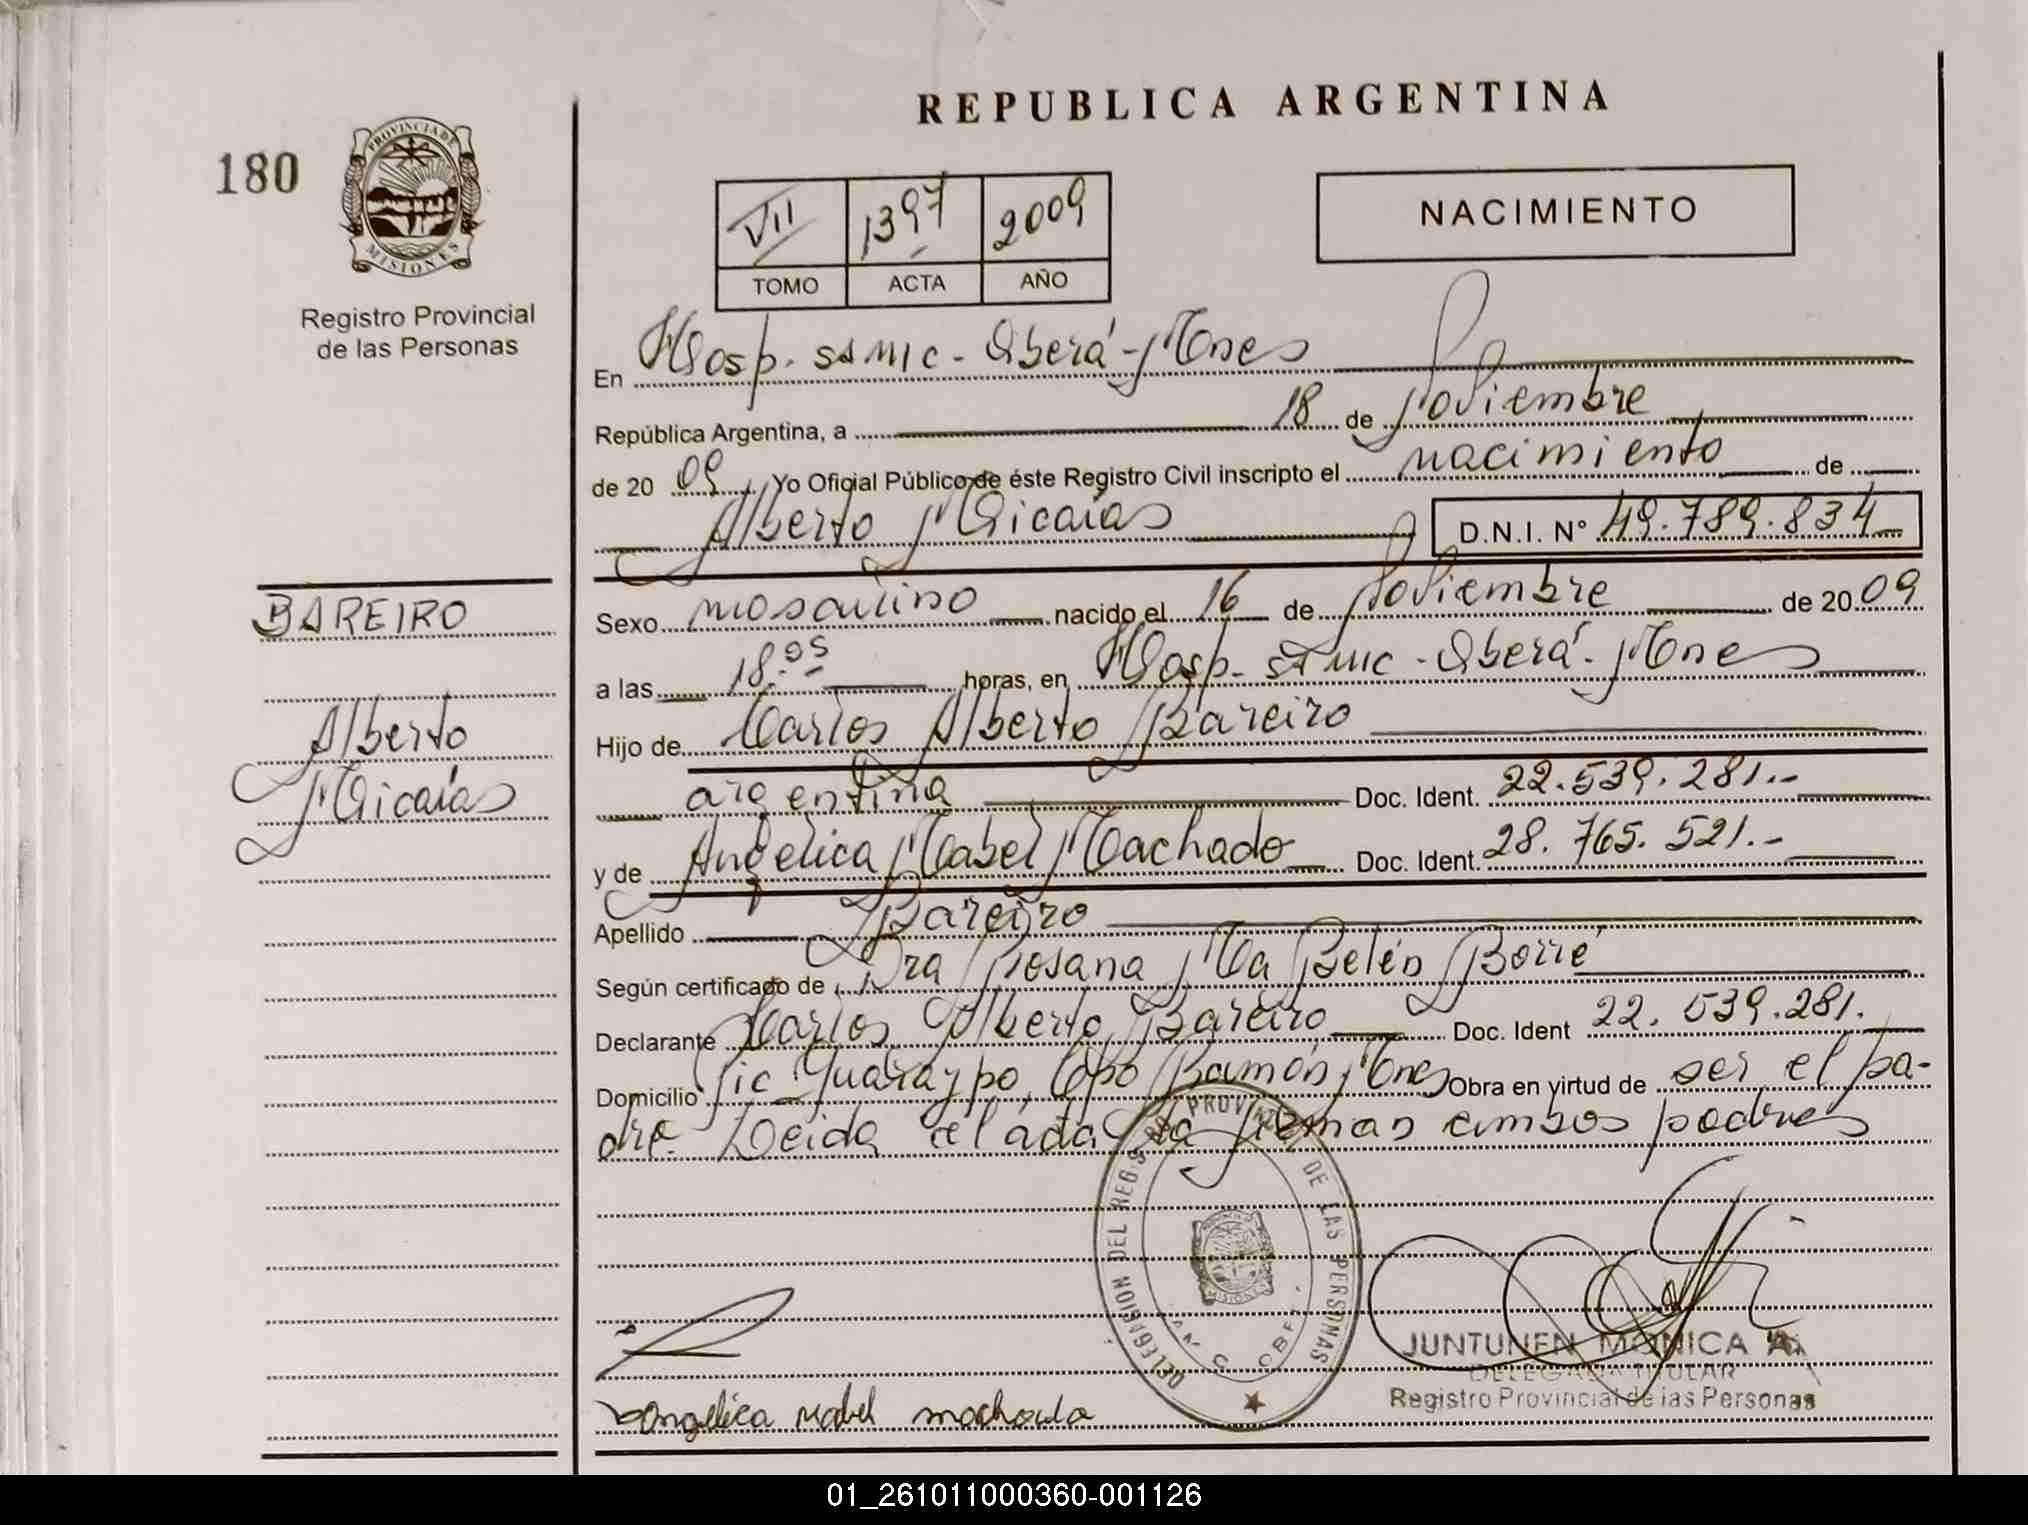 REPUBLICA ARGENTINA
180
PROVINCIA DE
MISIONES
Registro Provincial
de las Personas
VII 1397 2009
TOMO ACTA AÑO
NACIMIENTO
En Hosp. SAMIC - Oberá - Mnes
República Argentina, a 18 de Noviembre
de 20 09 Yo Oficial Público de éste Registro Civil inscripto el nacimiento de
Alberto Micaías D.N.I. Nº 49.789.834
BAREIRO
Alberto
Micaías
Sexo masculino nacido el 16 de Noviembre de 20 09
a las 18.05 horas, en Hosp. SAMIC - Oberá - Mnes
Hijo de Carlos Alberto Bareiro
argentina Doc. Ident. 22.539.281.-
y de Angélica Mabel Machado Doc. Ident. 28.765.521.-
Apellido Bareiro
Según certificado de Dra Rosana Ma Belén Borré
Declarante Carlos Alberto Bareiro Doc. Ident 22.539.281.
Domicilio Pic. Yuaraypo, Cpo Ramón, Mnes Obra en virtud de ser el pa-
dre. Leida el acta la firman ambos padres
DELEGACION DEL REG. PROVINCIAL DE LAS PERSONAS
MISIONES
Angelica mabel machado
JUNTUNEN MONICA A.
DELEGADA TITULAR
Registro Provincial de las Personas
01_261011000360-001126